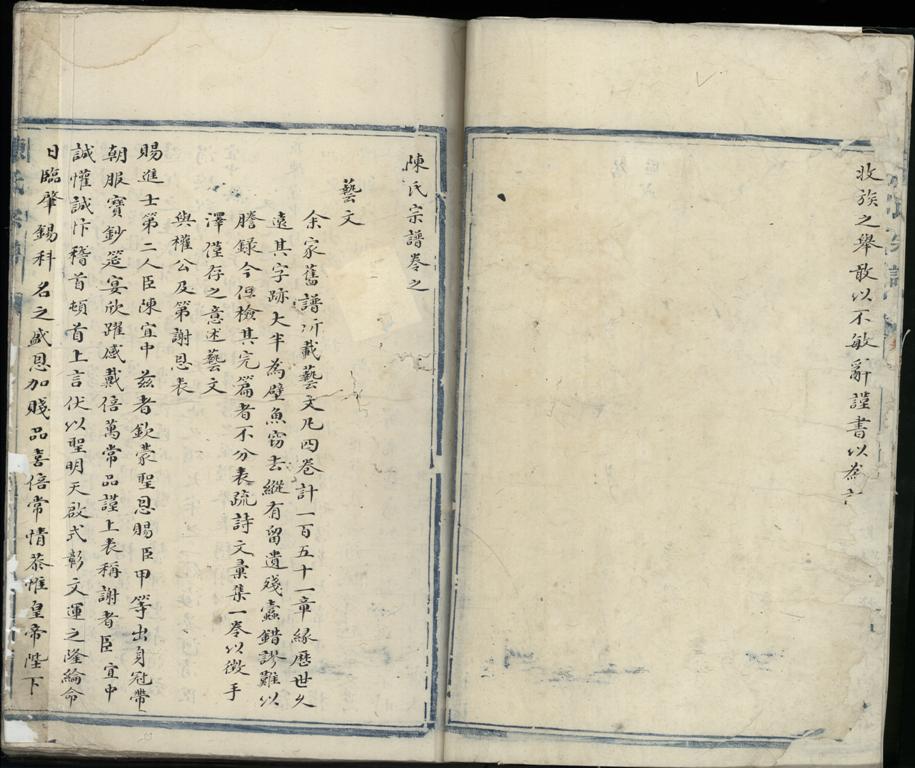 收族之舉敢以不敏辭謹書以為
陳氏宗譜卷之
藝文
余家舊譜所載藝文凡四卷計一百五十一章緣歷世久
遠其字跡大半為壁魚窃去縱有留遺殘蠹錯謬難以
謄錄今保檢其完篇者不分表疏詩文彙集一卷以徵手
澤僅存之意述藝文
與權公及第謝恩表
賜進士第二人臣陳宜中兹者欽蒙聖恩賜臣甲等出身冠帶
朝服寶鈔筵宴欣躍感戴倍萬常品謹上表稱謝者臣宜中
誠懽誠忭稽首頓首上言伏以聖明天啟式彰文運之隆綸命
日臨肇錫科名之盛恩加賤品喜倍常情恭惟皇帝陛下